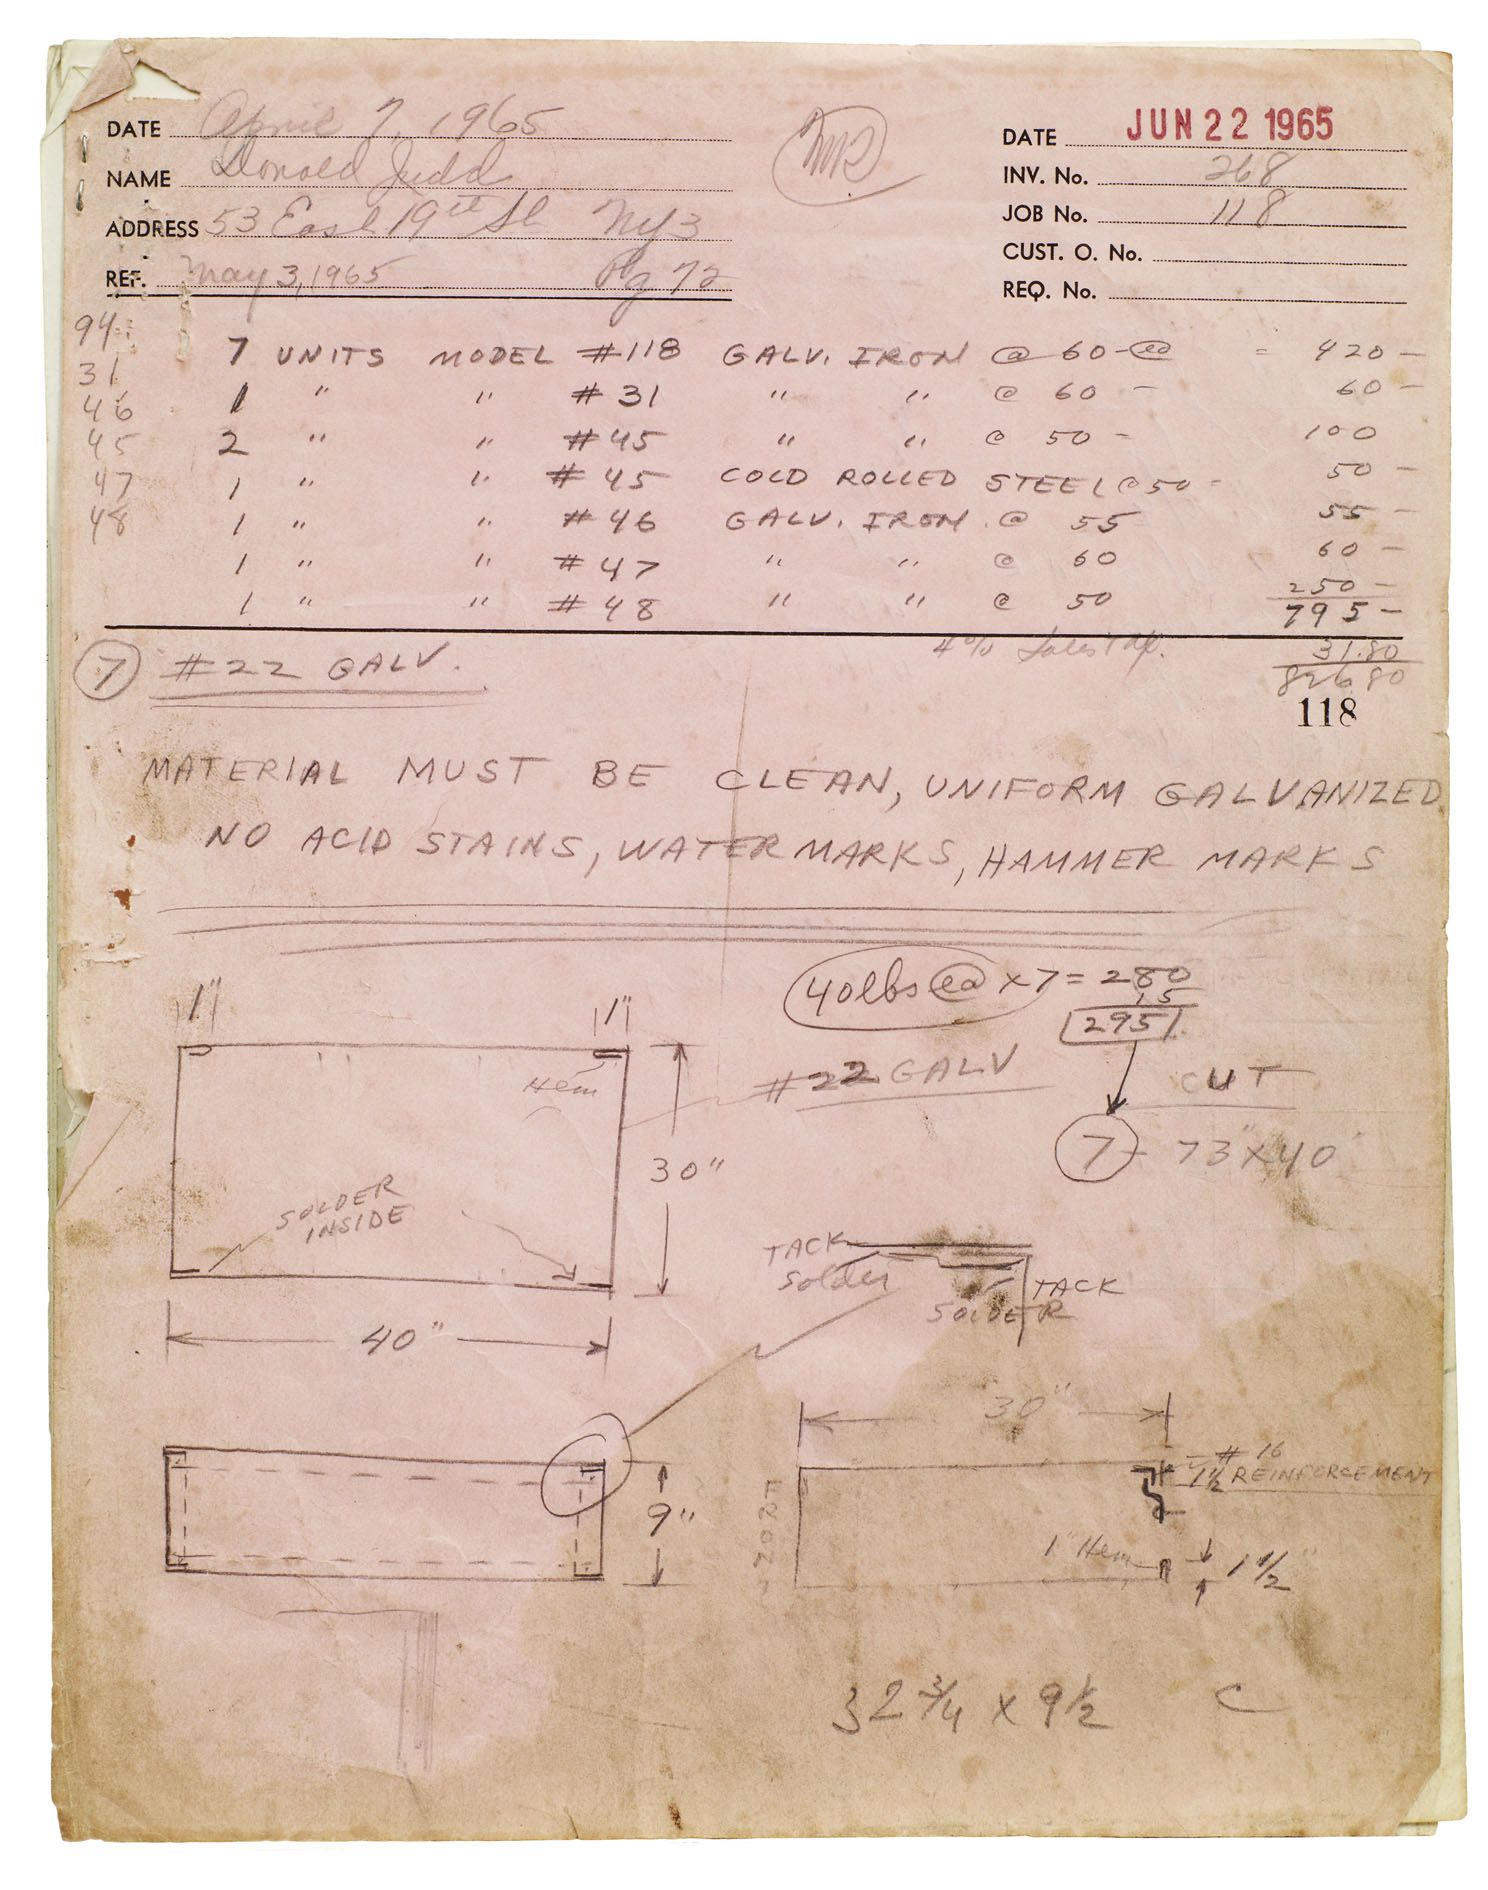 DATE April 7, 1965
NAME Donald Judd
ADDRESS 53 East 19th St NY 3
REF. May 3, 1965 Pg 72
DATE JUN 22 1965
INV. No. 268
JOB No. 118
CUST. O. No.
REQ. No.
94
31
46
45
47
48
7 UNITS MODEL #118 GALV. IRON @ 60- ea = 420-
1 " " #31 " " @ 60- 60-
2 " " #45 " " @ 50- 100
1 " " #45 COLD ROLLED STEEL @ 50- 50-
1 " " #46 GALV. IRON @ 55 55-
1 " " #47 " " @ 60 60-
1 " " #48 " " @ 50 250-
795-
4% Sales 31.80
826.80
7 #22 GALV.
118
MATERIAL MUST BE CLEAN, UNIFORM GALVANIZED
NO ACID STAINS, WATER MARKS, HAMMER MARKS
40lbs ea x 7 = 280
15
295
1" 1"
Hem
#22 GALV
CUT
7 - 73" x 40"
30"
SOLDER
INSIDE
40"
TACK
Solder
SOLDER
TACK
30"
9"
#16
1 1/2 REINFORCEMENT
1" Hem
1 1/2"
32 3/4 x 9 1/2 C